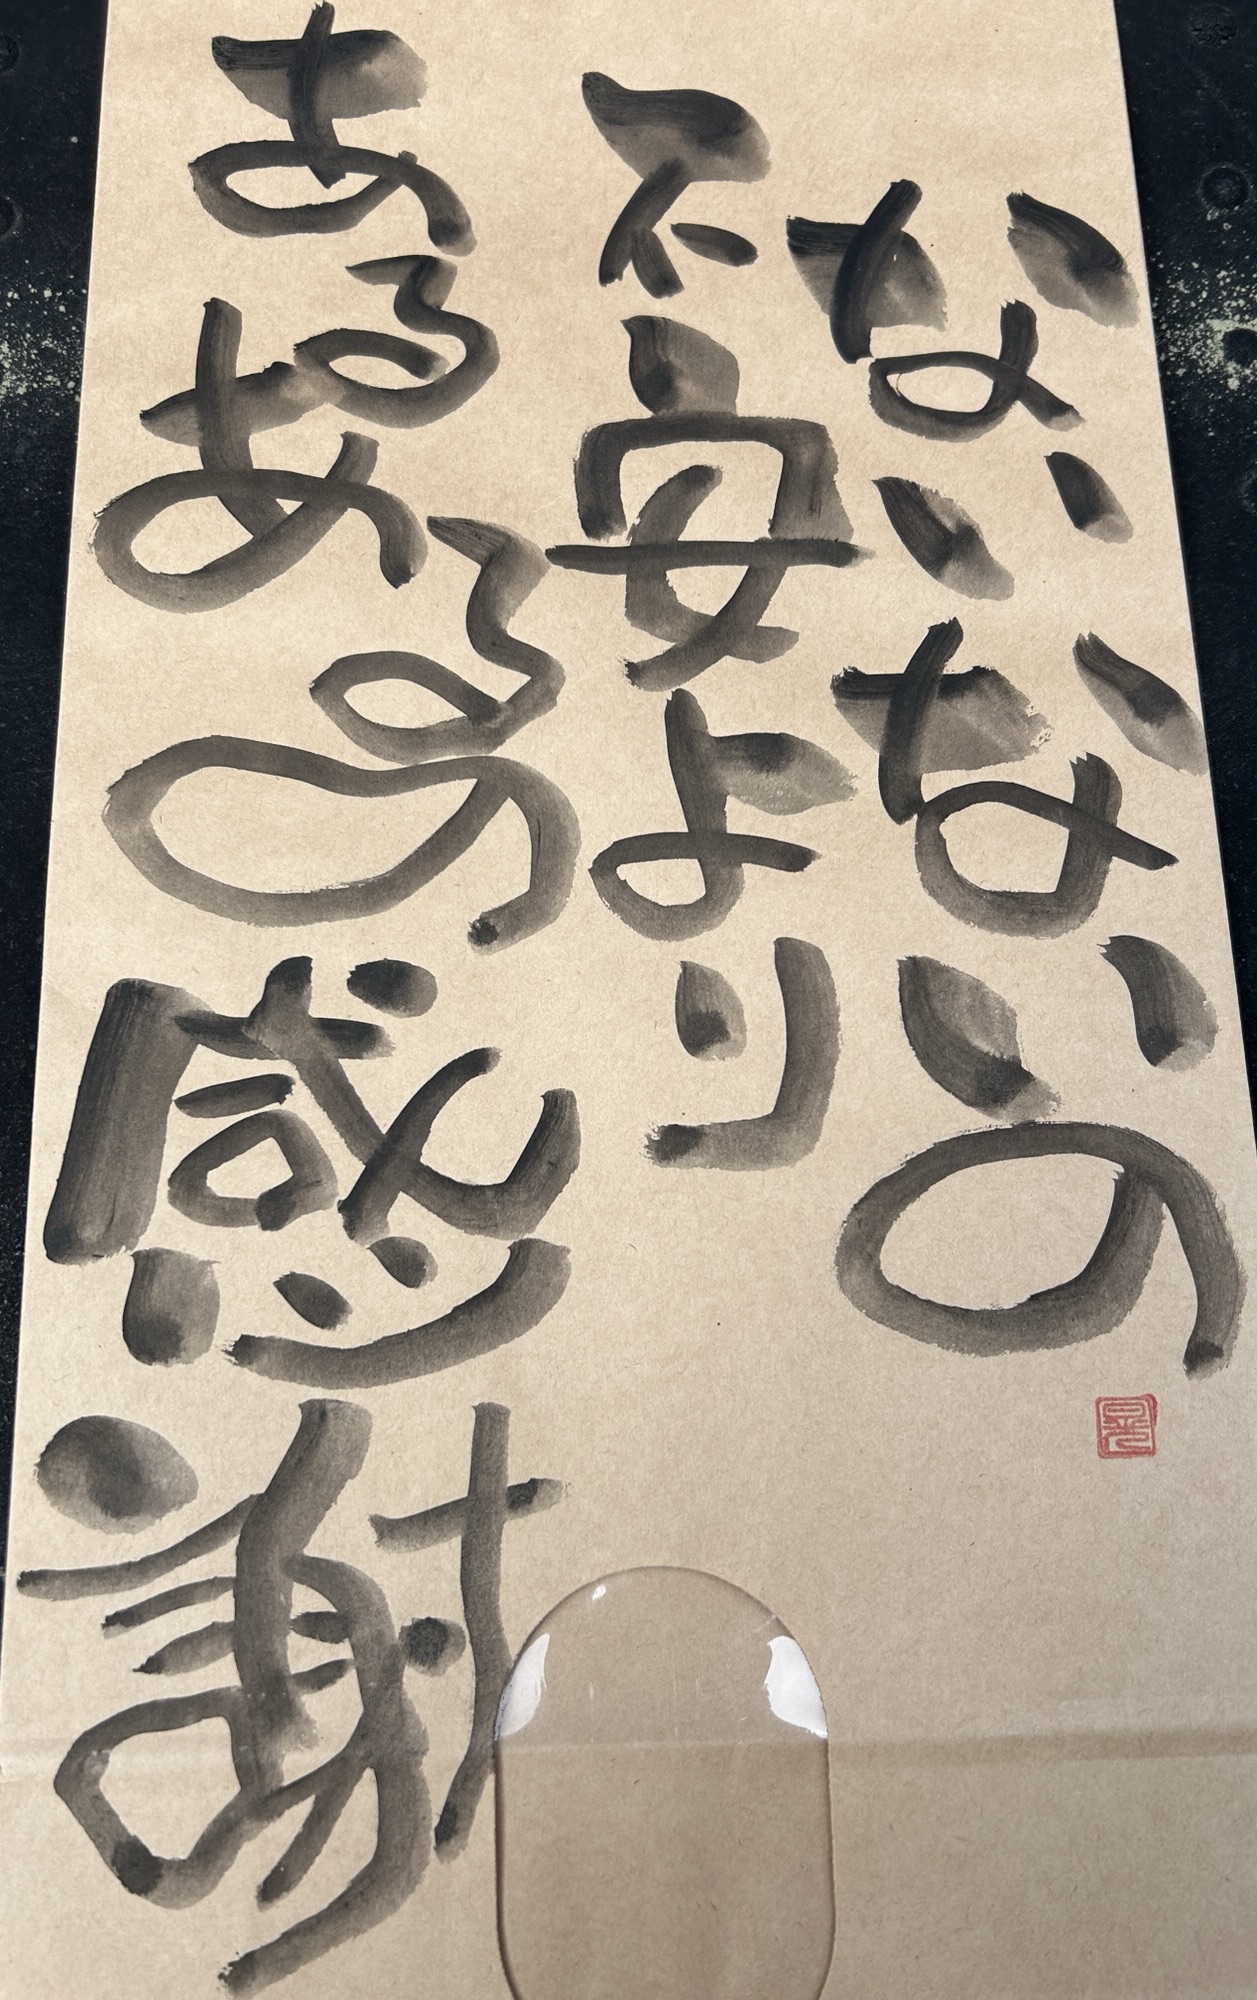 ないないの
不安より
あるあるの感謝